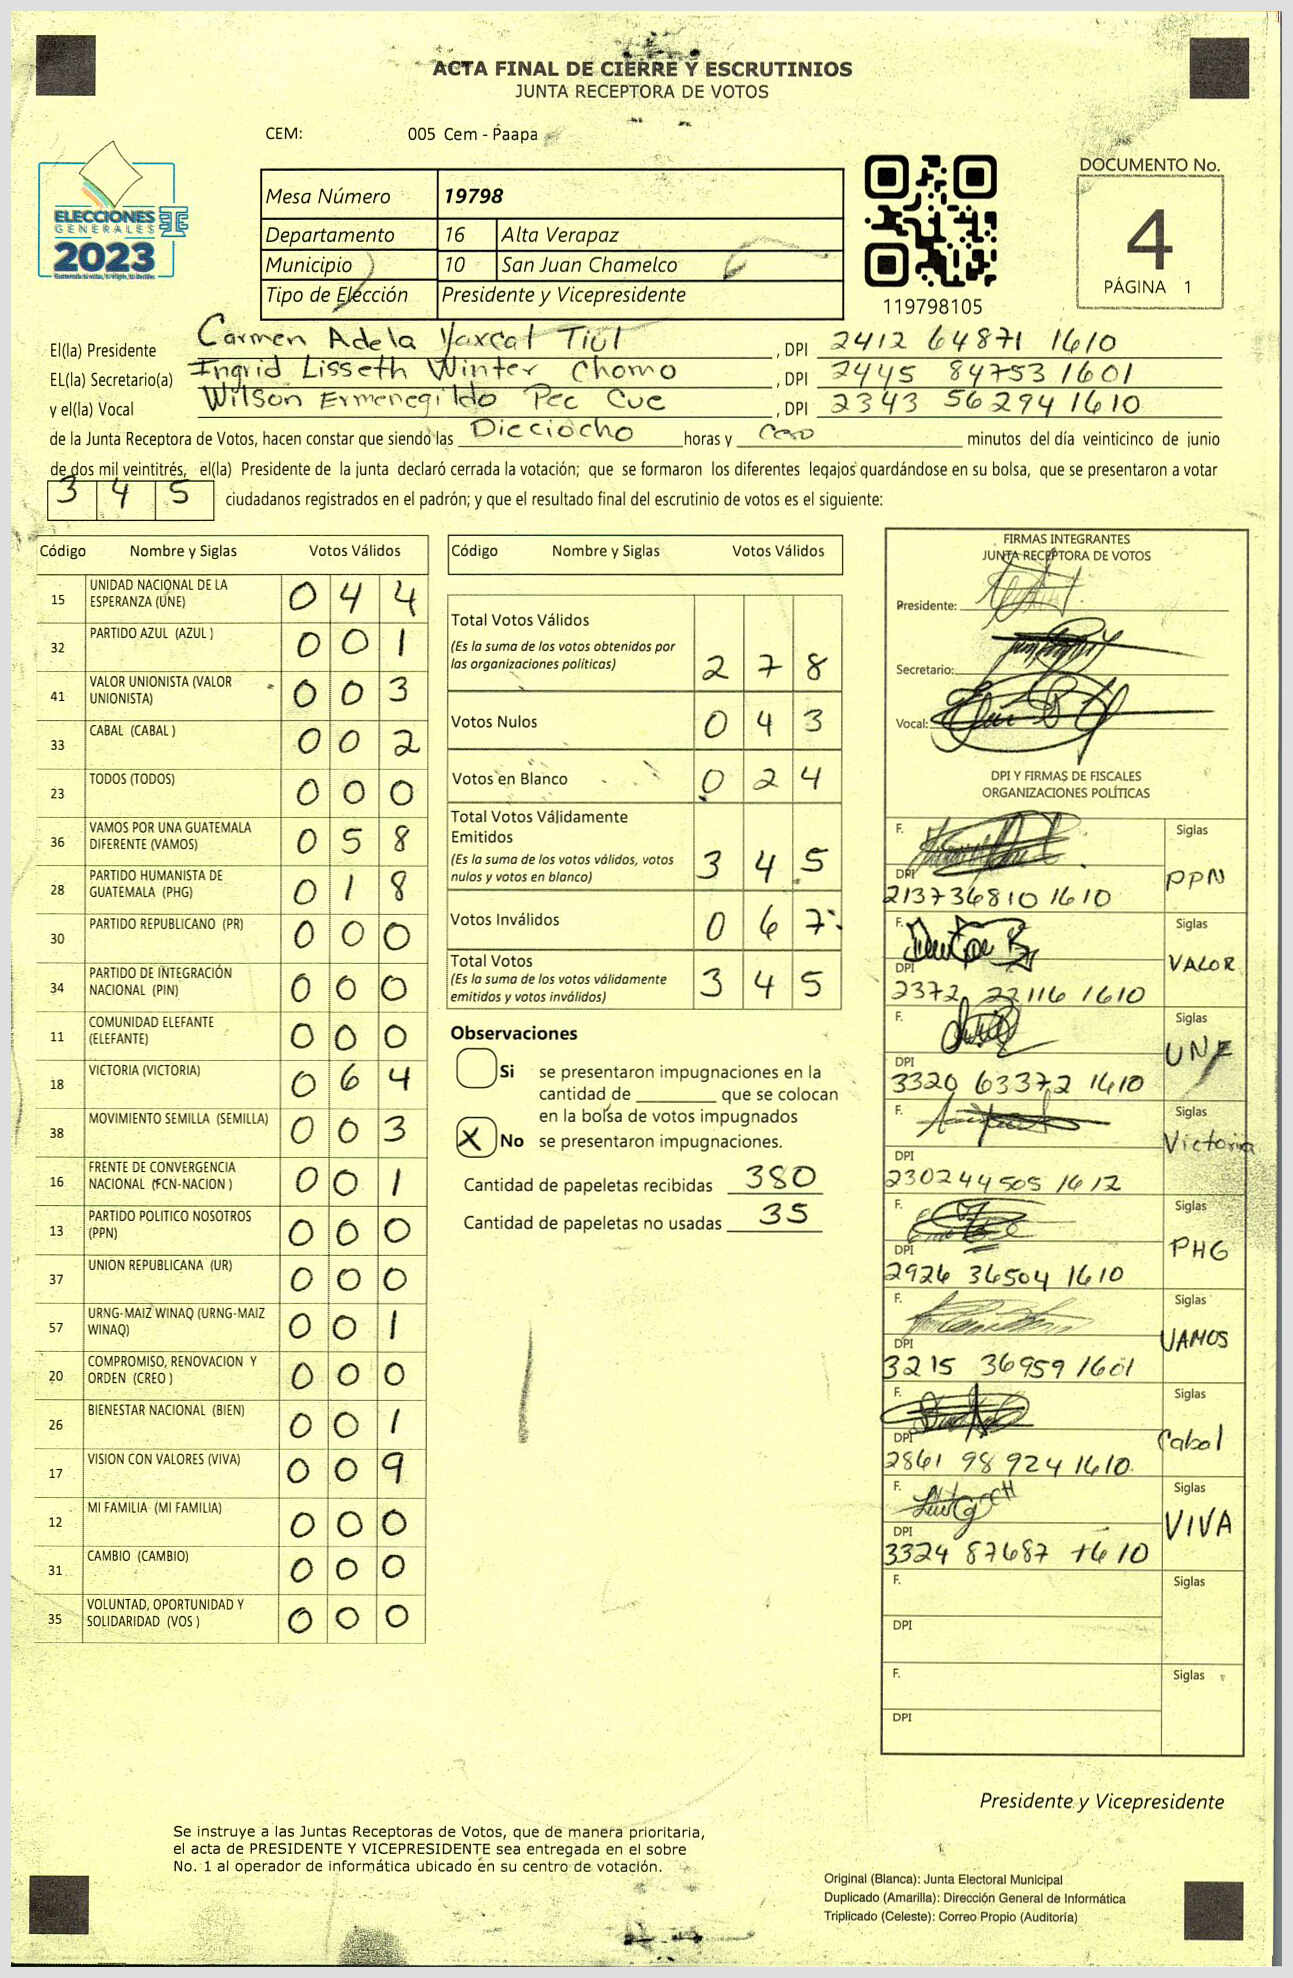 ACTA FINAL DE CIERRE Y ESCRUTINIOS
JUNTA RECEPTORA DE VOTOS
CEM: 005 Cem - Paapa
ELECCIONES
GENERALES
2023
Mesa Número 19798
Departamento 16 Alta Verapaz
Municipio 10 San Juan Chamelco
Tipo de Elección Presidente y Vicepresidente
119798105
DOCUMENTO No.
4
PÁGINA 1
El(la) Presidente Carmen Adela Yaxcal Tiul , DPI 2412 64871 1610
EL(la) Secretario(a) Ingrid Lisseth Winter Chomo , DPI 2445 84753 1601
y el(la) Vocal Wilson Ermenegildo Pec Cuc , DPI 2343 56294 1610
de la Junta Receptora de Votos, hacen constar que siendo las Dieciocho horas y cero minutos del día veinticinco de junio
de dos mil veintitrés, el(la) Presidente de la junta declaró cerrada la votación; que se formaron los diferentes legajos guardándose en su bolsa, que se presentaron a votar
3 4 5 ciudadanos registrados en el padrón; y que el resultado final del escrutinio de votos es el siguiente:
Código Nombre y Siglas Votos Válidos
15 UNIDAD NACIONAL DE LA ESPERANZA (UNE) 0 4 4
32 PARTIDO AZUL (AZUL ) 0 0 1
41 VALOR UNIONISTA (VALOR UNIONISTA) 0 0 3
33 CABAL (CABAL ) 0 0 2
23 TODOS (TODOS) 0 0 0
36 VAMOS POR UNA GUATEMALA DIFERENTE (VAMOS) 0 5 8
28 PARTIDO HUMANISTA DE GUATEMALA (PHG) 0 1 8
30 PARTIDO REPUBLICANO (PR) 0 0 0
34 PARTIDO DE INTEGRACIÓN NACIONAL (PIN) 0 0 0
11 COMUNIDAD ELEFANTE (ELEFANTE) 0 0 0
18 VICTORIA (VICTORIA) 0 6 4
38 MOVIMIENTO SEMILLA (SEMILLA) 0 0 3
16 FRENTE DE CONVERGENCIA NACIONAL (FCN-NACION ) 0 0 1
13 PARTIDO POLITICO NOSOTROS (PPN) 0 0 0
37 UNION REPUBLICANA (UR) 0 0 0
57 URNG-MAIZ WINAQ (URNG-MAIZ WINAQ) 0 0 1
20 COMPROMISO, RENOVACION Y ORDEN (CREO ) 0 0 0
26 BIENESTAR NACIONAL (BIEN) 0 0 1
17 VISION CON VALORES (VIVA) 0 0 9
12 MI FAMILIA (MI FAMILIA) 0 0 0
31 CAMBIO (CAMBIO) 0 0 0
35 VOLUNTAD, OPORTUNIDAD Y SOLIDARIDAD (VOS ) 0 0 0
Código Nombre y Siglas Votos Válidos
Total Votos Válidos
(Es la suma de los votos obtenidos por
las organizaciones políticas) 2 7 8
Votos Nulos 0 4 3
Votos en Blanco 0 2 4
Total Votos Válidamente
Emitidos
(Es la suma de los votos válidos, votos
nulos y votos en blanco) 3 4 5
Votos Inválidos 0 6 7
Total Votos
(Es la suma de los votos válidamente
emitidos y votos inválidos) 3 4 5
Observaciones
Si se presentaron impugnaciones en la
cantidad de ________ que se colocan
en la bolsa de votos impugnados
X No se presentaron impugnaciones.
Cantidad de papeletas recibidas 380
Cantidad de papeletas no usadas 35
FIRMAS INTEGRANTES
JUNTA RECEPTORA DE VOTOS
Presidente:
Secretario:
Vocal:
DPI Y FIRMAS DE FISCALES
ORGANIZACIONES POLÍTICAS
F. Siglas
DPI PPN
213736810 1610
F. Siglas
DPI VALOR
2372 22116 1610
F. Siglas
DPI UNE
3320 63372 1610
F. Siglas
DPI Victoria
230244505 1612
F. Siglas
DPI PHG
2926 36504 1610
F. Siglas
DPI VAMOS
3215 36959 1601
F. Siglas
DPI Cabal
2861 98924 1610
F. Siglas
DPI VIVA
3324 87687 1610
F. Siglas
DPI
F. Siglas
DPI
Presidente y Vicepresidente
Se instruye a las Juntas Receptoras de Votos, que de manera prioritaria,
el acta de PRESIDENTE Y VICEPRESIDENTE sea entregada en el sobre
No. 1 al operador de informática ubicado en su centro de votación.
Original (Blanca): Junta Electoral Municipal
Duplicado (Amarilla): Dirección General de Informática
Triplicado (Celeste): Correo Propio (Auditoría)